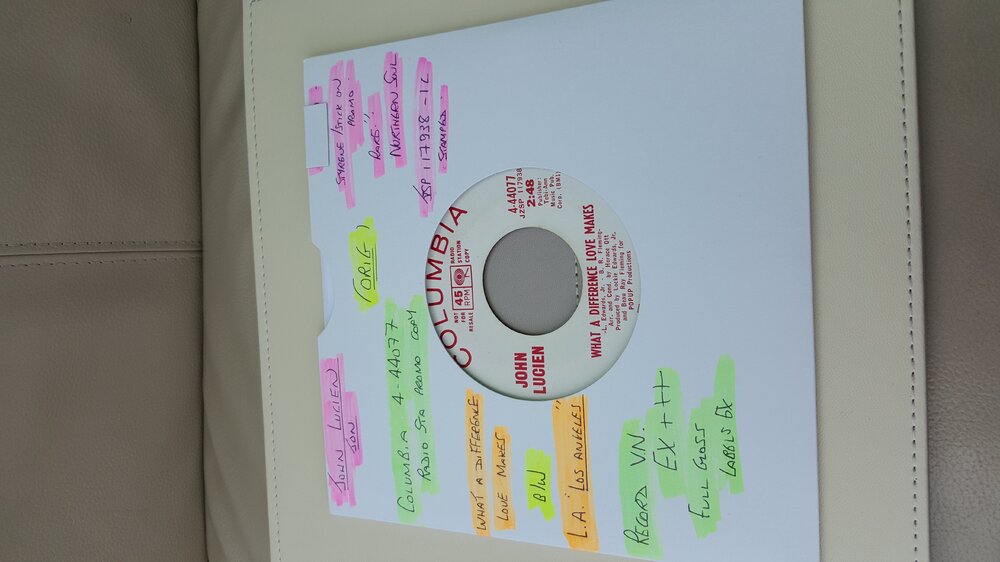 JOHN LUCIEN
JON
(ORIG)
STYRENE/STICK ON
PROMO.
RARE"
NORTHERN SOUL
COLUMBIA 4-44077
RADIO STA PROMO COPY
JZSP 117938-1C
STAMPED.
WHAT A DIFFERENCE
LOVE MAKES
B/W
L.A. "LOS ANGELES"
RECORD VN.
EX +++
FULL GLOSS
LABELS EX
COLUMBIA
NOT
FOR
RESALE
45
RPM
RADIO
STATION
COPY
JOHN
LUCIEN
4-44077
JZSP 117938
2:48
Publisher:
Tobi-Ann
Music Pub.
Corp. (BMI)
WHAT A DIFFERENCE LOVE MAKES
-L. Edwards, Jr. - B. R. Fleming-
Arr. and Cond. by Horace Ott
Produced by Lockie Edwards, Jr.
and Beau Ray Fleming for
POPUP Productions